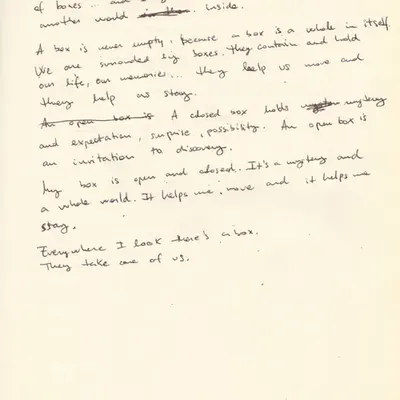 of boxes... and
another world inside.
A box is never empty, because a box is a whole in itself.
We are surrounded by boxes. They contain and hold
our life, our memories... they help us move and
they help us stay.
An open box is A closed box holds mystery
and expectation, surprise, possibility. An open box is
an invitation to discovery.
My box is open and closed. It's a mystery and
a whole world. It helps me move and it helps me
stay.
Everywhere I look there's a box.
They take care of us.